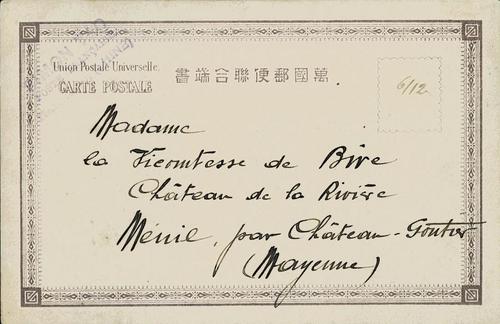 Union Postale Universelle.
CARTE POSTALE
書端合聯便郵國萬
6/12
Madame
la Vicomtesse de Bire
Château de la Rivière
Ménil, par Château-Gontier
(Mayenne)